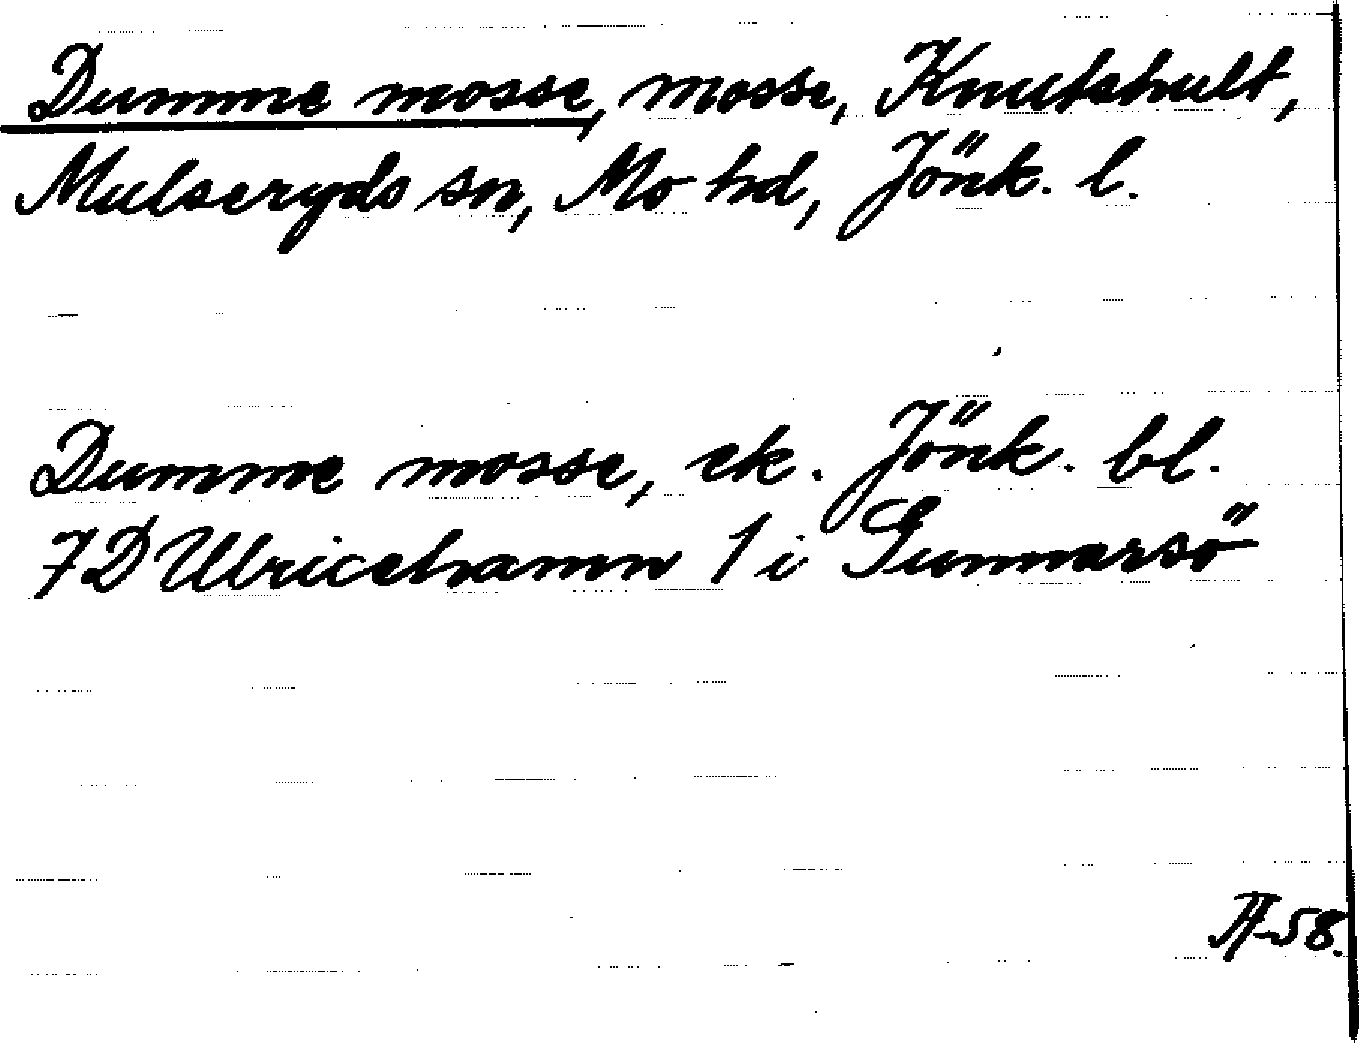 Dumme mosse, mosse, Knutshult,
Mulseryds sn, Mo hd, Jönk. l.
Dumme mosse, ek. Jönk. bl.
7D Ulricehamn 1 i Gunnarsö
-58.